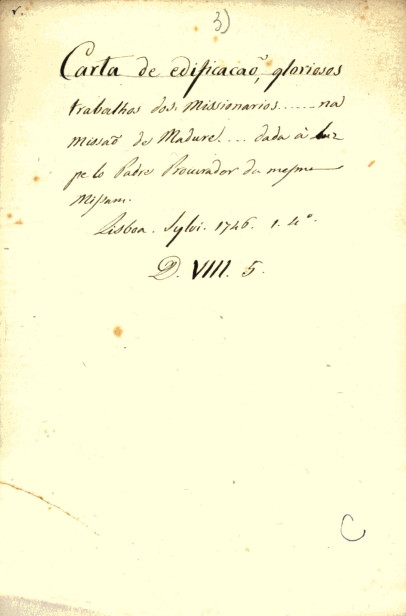 v.
3)
Carta de edificacaõ, gloriosos
trabalhos dos Missionarios......na
missaõ de Madurè.... dada à luz
pelo Padre Procurador da mesma
Missam.
Lisboa. Sylvi. 1746. 1. 4º.
D. VIII. 5.
C